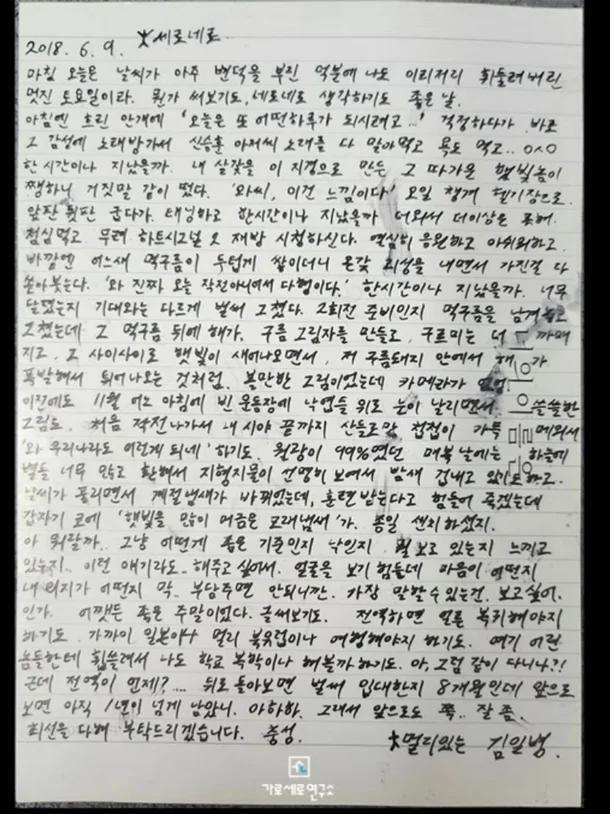 2018. 6. 9. 大세로네로
마침 오늘은 날씨가 아주 변덕을 부린 덕분에 나도 이리저리 휘둘려버린
멋진 토요일이라. 뭔가 써보기도, 네로네로 생각하기도 좋은 날.
아침엔 흐린 안개에 '오늘은 또 어떤하루가 되시려고...' 걱정하다가 바로
그 감성에 노래방가서 신승훈 아저씨 노래를 다 말아먹고 욕도 먹고.. ㅇㅅㅇ
한시간이나 지났을까. 내 살갗을 이 지경으로 만든 그 따가운 햇빛놈이
쨍하니 거짓말 같이 떴다. '와씨, 이건 느낌이다' 오일 챙겨 헬기장으로.
앞판 뒷판 굽다가. 태닝하고 한시간이나 지났을까 더워서 더이상은 못해.
점심먹고 무려 하트시그널 2 재방 시청하신다. 열심히 응원하고 아쉬워하고.
바깥엔 어느새 먹구름이 두텁게 쌓이더니 온갖 괴성을 내면서 가진걸 다
쏟아붓는다. '와 진짜 오늘 작전아니여서 다행이다.' 한시간이나 지났을까. 너무
달렸는지 기대와는 다르게 벌써 그쳤다. 2회전 준비인지 먹구름을 남겨놓고
그쳤는데 그 먹구름 뒤에 해가. 구름 그림자를 만들고, 구르미는 더 까매
지고, 그 사이사이로 햇빛이 새어나오면서, 저 구름돼지 안에서 해가
폭발해서 튀어나오는 것처럼. 볼만한 그림이었는데 카메라가 없
이전에도 11월 어느 아침에 빈 운동장에 낙엽들 위로 눈이 날리면서 쓸쓸한
그림도. 처음 작전나가서 내 시야 끝까지 산들로만 첩첩이 가득 메워서
'와 우리나라도 이렇게 되네' 하기도. 월광이 99%였던 매복날에는 하늘에
별들 너무 많고 환해서 지형지물이 선명히 보여서 밤새 겁내고 있기도하고.
날씨가 풀리면서 계절냄새가 바뀌었는데, 훈련받는다고 힘들어 죽겠는데
갑자기 코에 '햇빛을 많이 머금은 모래냄새'가. 종일 센치하셨지.
아 뭐랄까.. 그냥 어떻게 좁은 기준인지 낙인지 뭘 보고 있는지 느끼고
있는지.. 이런 얘기라도. 해주고 싶어서. 얼굴을 보기 힘든데 마음이 어떤지
내 의지가 어떤지 막. 부담주면 안되니깐. 가장 말할수 있는건. 보고싶어.
인가. 어쨌든 좋은 주말이었다. 글써보기도. 전역하면 얼른 복귀해야지
하기도. 가까이 일본이나 멀리 북유럽이나 여행해야지 하기도. 여기 어린
놈들한테 휩쓸려서 나도 학교 복학이나 해볼까하기도. 아, 그럼 같이 다니나?!
근데 전역이 언제?.... 뒤로 돌아보면 벌써 입대한지 8개월인데 앞으로
보면 아직 1년이 넘게 남았니. 아하하. 그래서 앞으로도 쭉.. 잘 좀.
최선을 다해 부탁드리겠습니다. 충성.
大멀리있는 김일병.
가로세로연구소